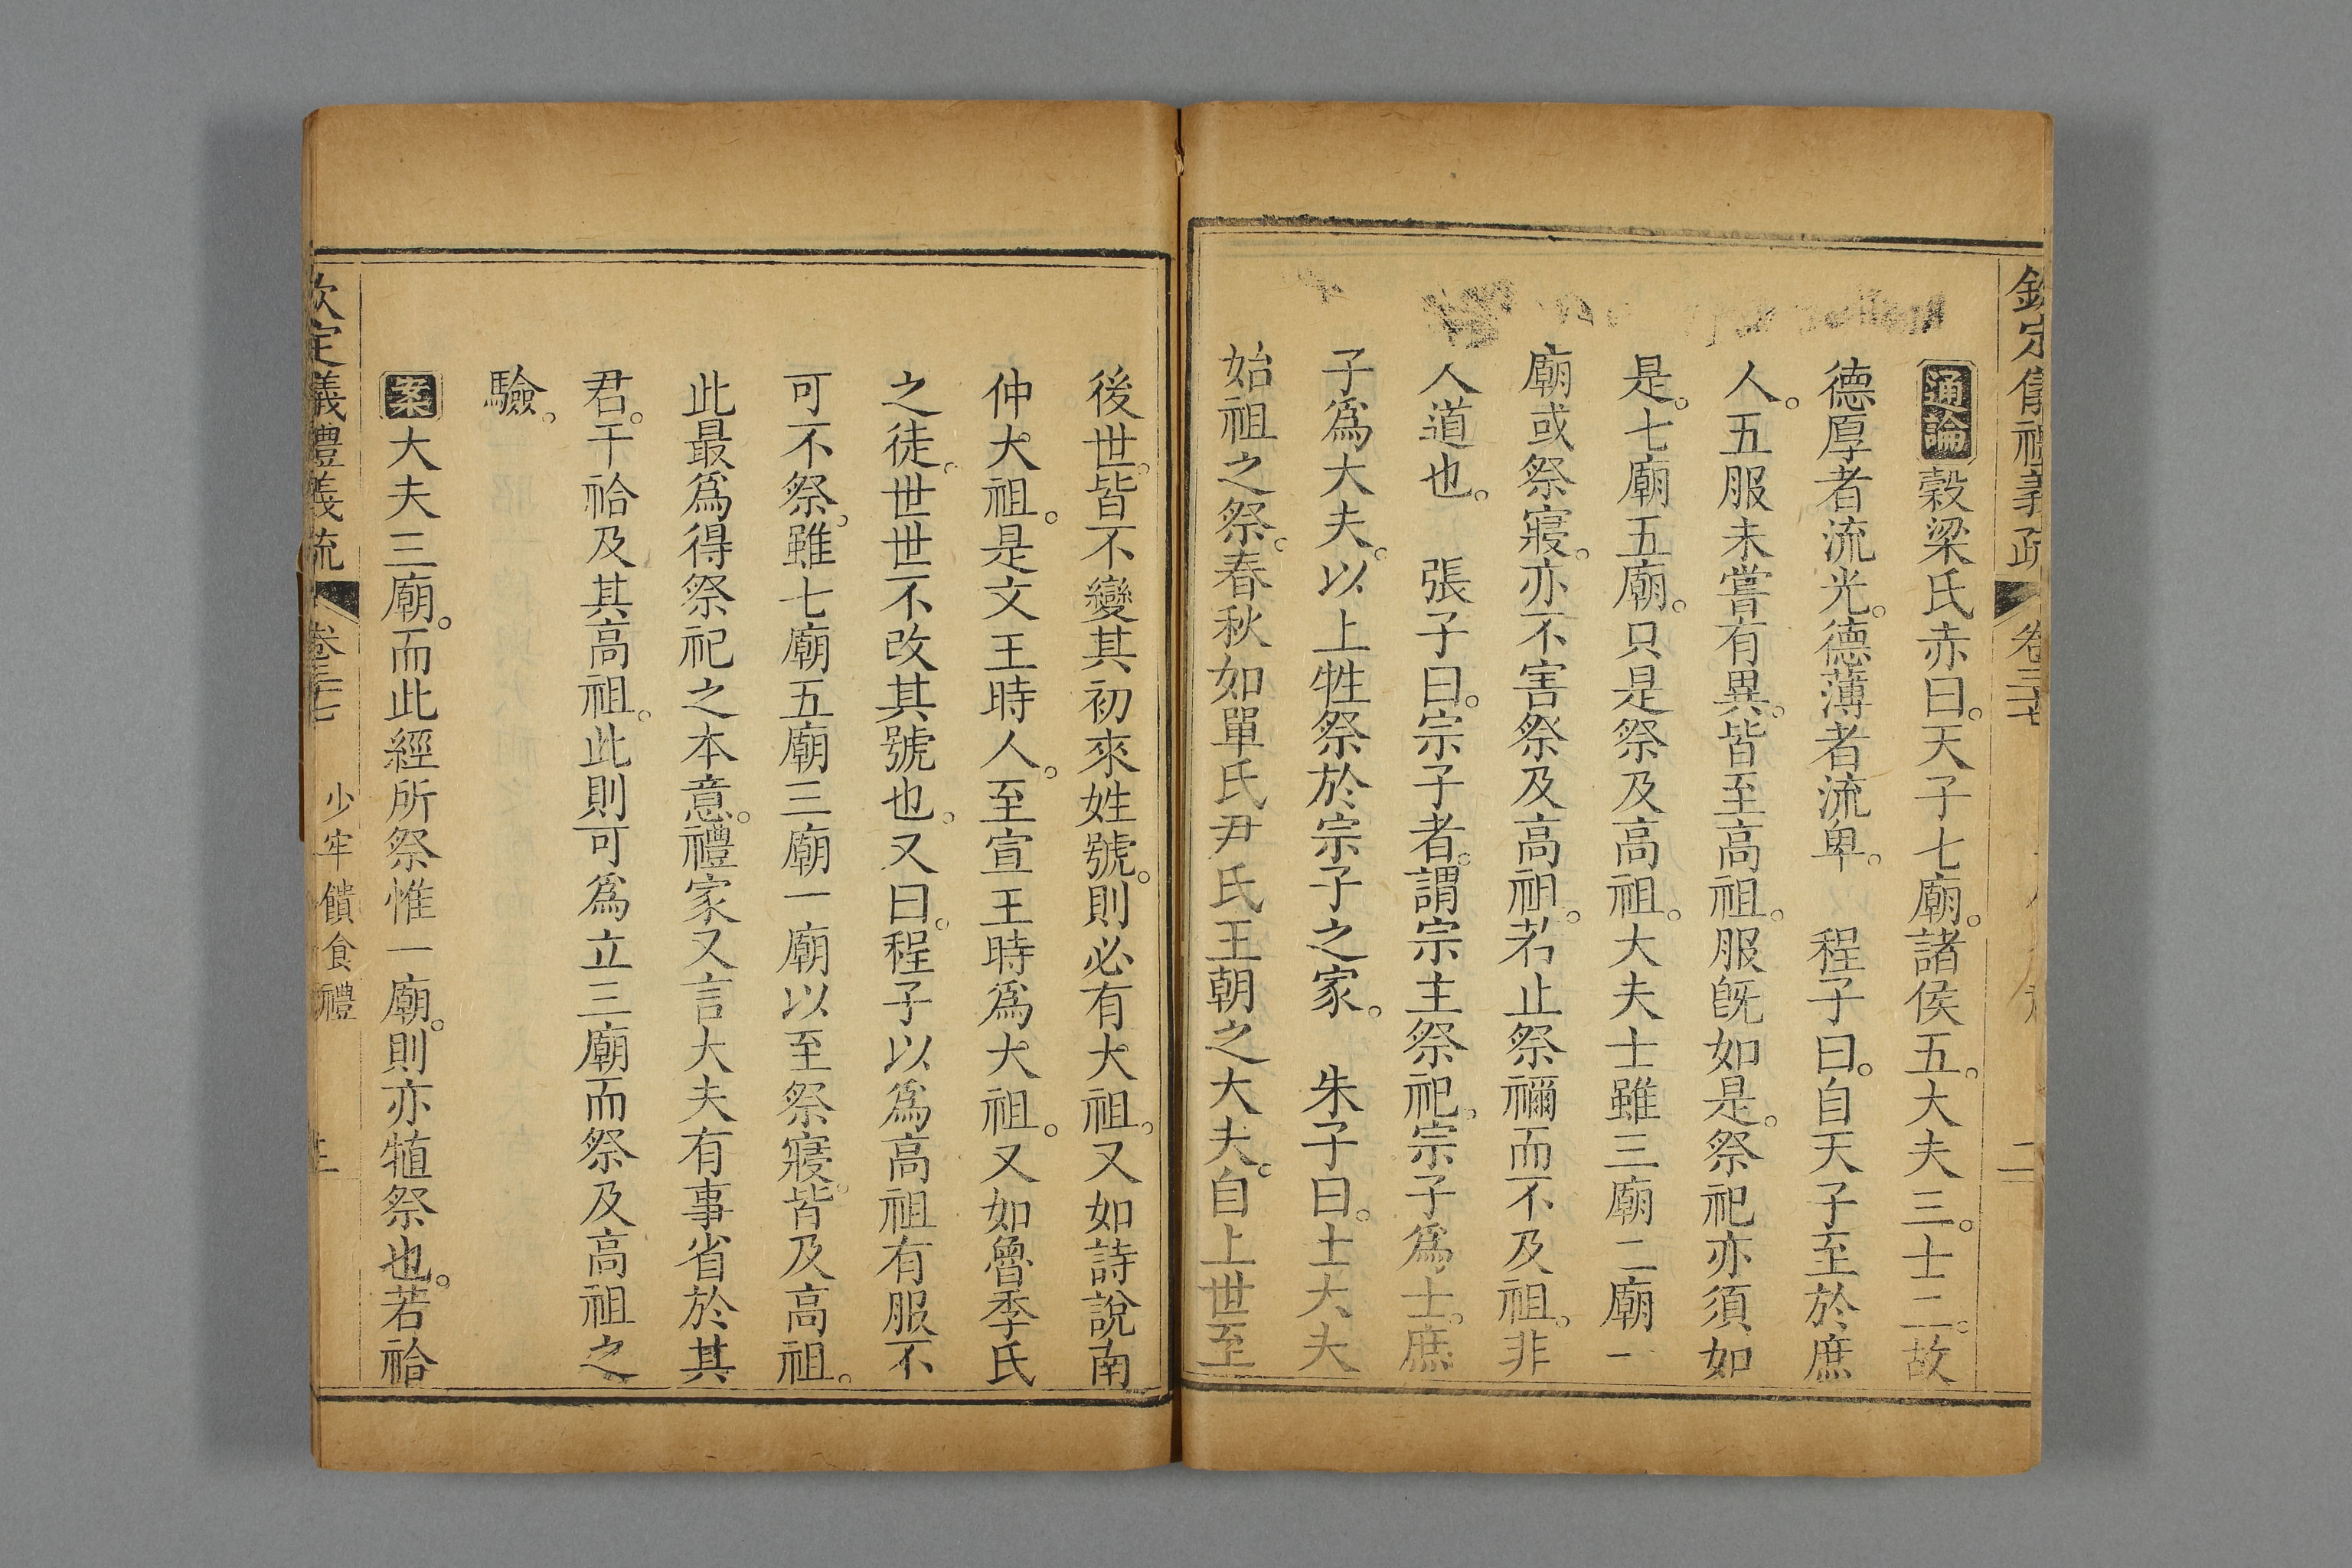 欽定儀禮義疏 卷三十七 二
通論穀梁氏赤曰。天子七廟。諸侯五。大夫三。士二。故
德厚者流光。德薄者流卑。 程子曰。自天子至於庶
人。五服未嘗有異。皆至高祖。服旣如是。祭祀亦須如
是。七廟五廟。只是祭及高祖。大夫士雖三廟二廟一
廟或祭寢。亦不害祭及高祖。若止祭禰而不及祖。非
人道也。 張子曰。宗子者。謂宗主祭祀。宗子爲士。庶
子爲大夫。以上牲祭於宗子之家。 朱子曰。士大夫
始祖之祭。春秋如單氏尹氏王朝之大夫。自上世至
後世。皆不變其初來姓號。則必有大祖。又如詩說南
仲大祖。是文王時人。至宣王時爲大祖。又如魯季氏
之徒。世世不改其號也。又曰。程子以爲高祖有服不
可不祭。雖七廟五廟三廟一廟以至祭寢。皆及高祖。
此最爲得祭祀之本意。禮家又言大夫有事省於其
君。干祫及其高祖。此則可爲立三廟而祭及高祖之
驗。
案大夫三廟。而此經所祭惟一廟。則亦犆祭也。若祫
欽定儀禮義疏 卷三十七 少牢饋食禮